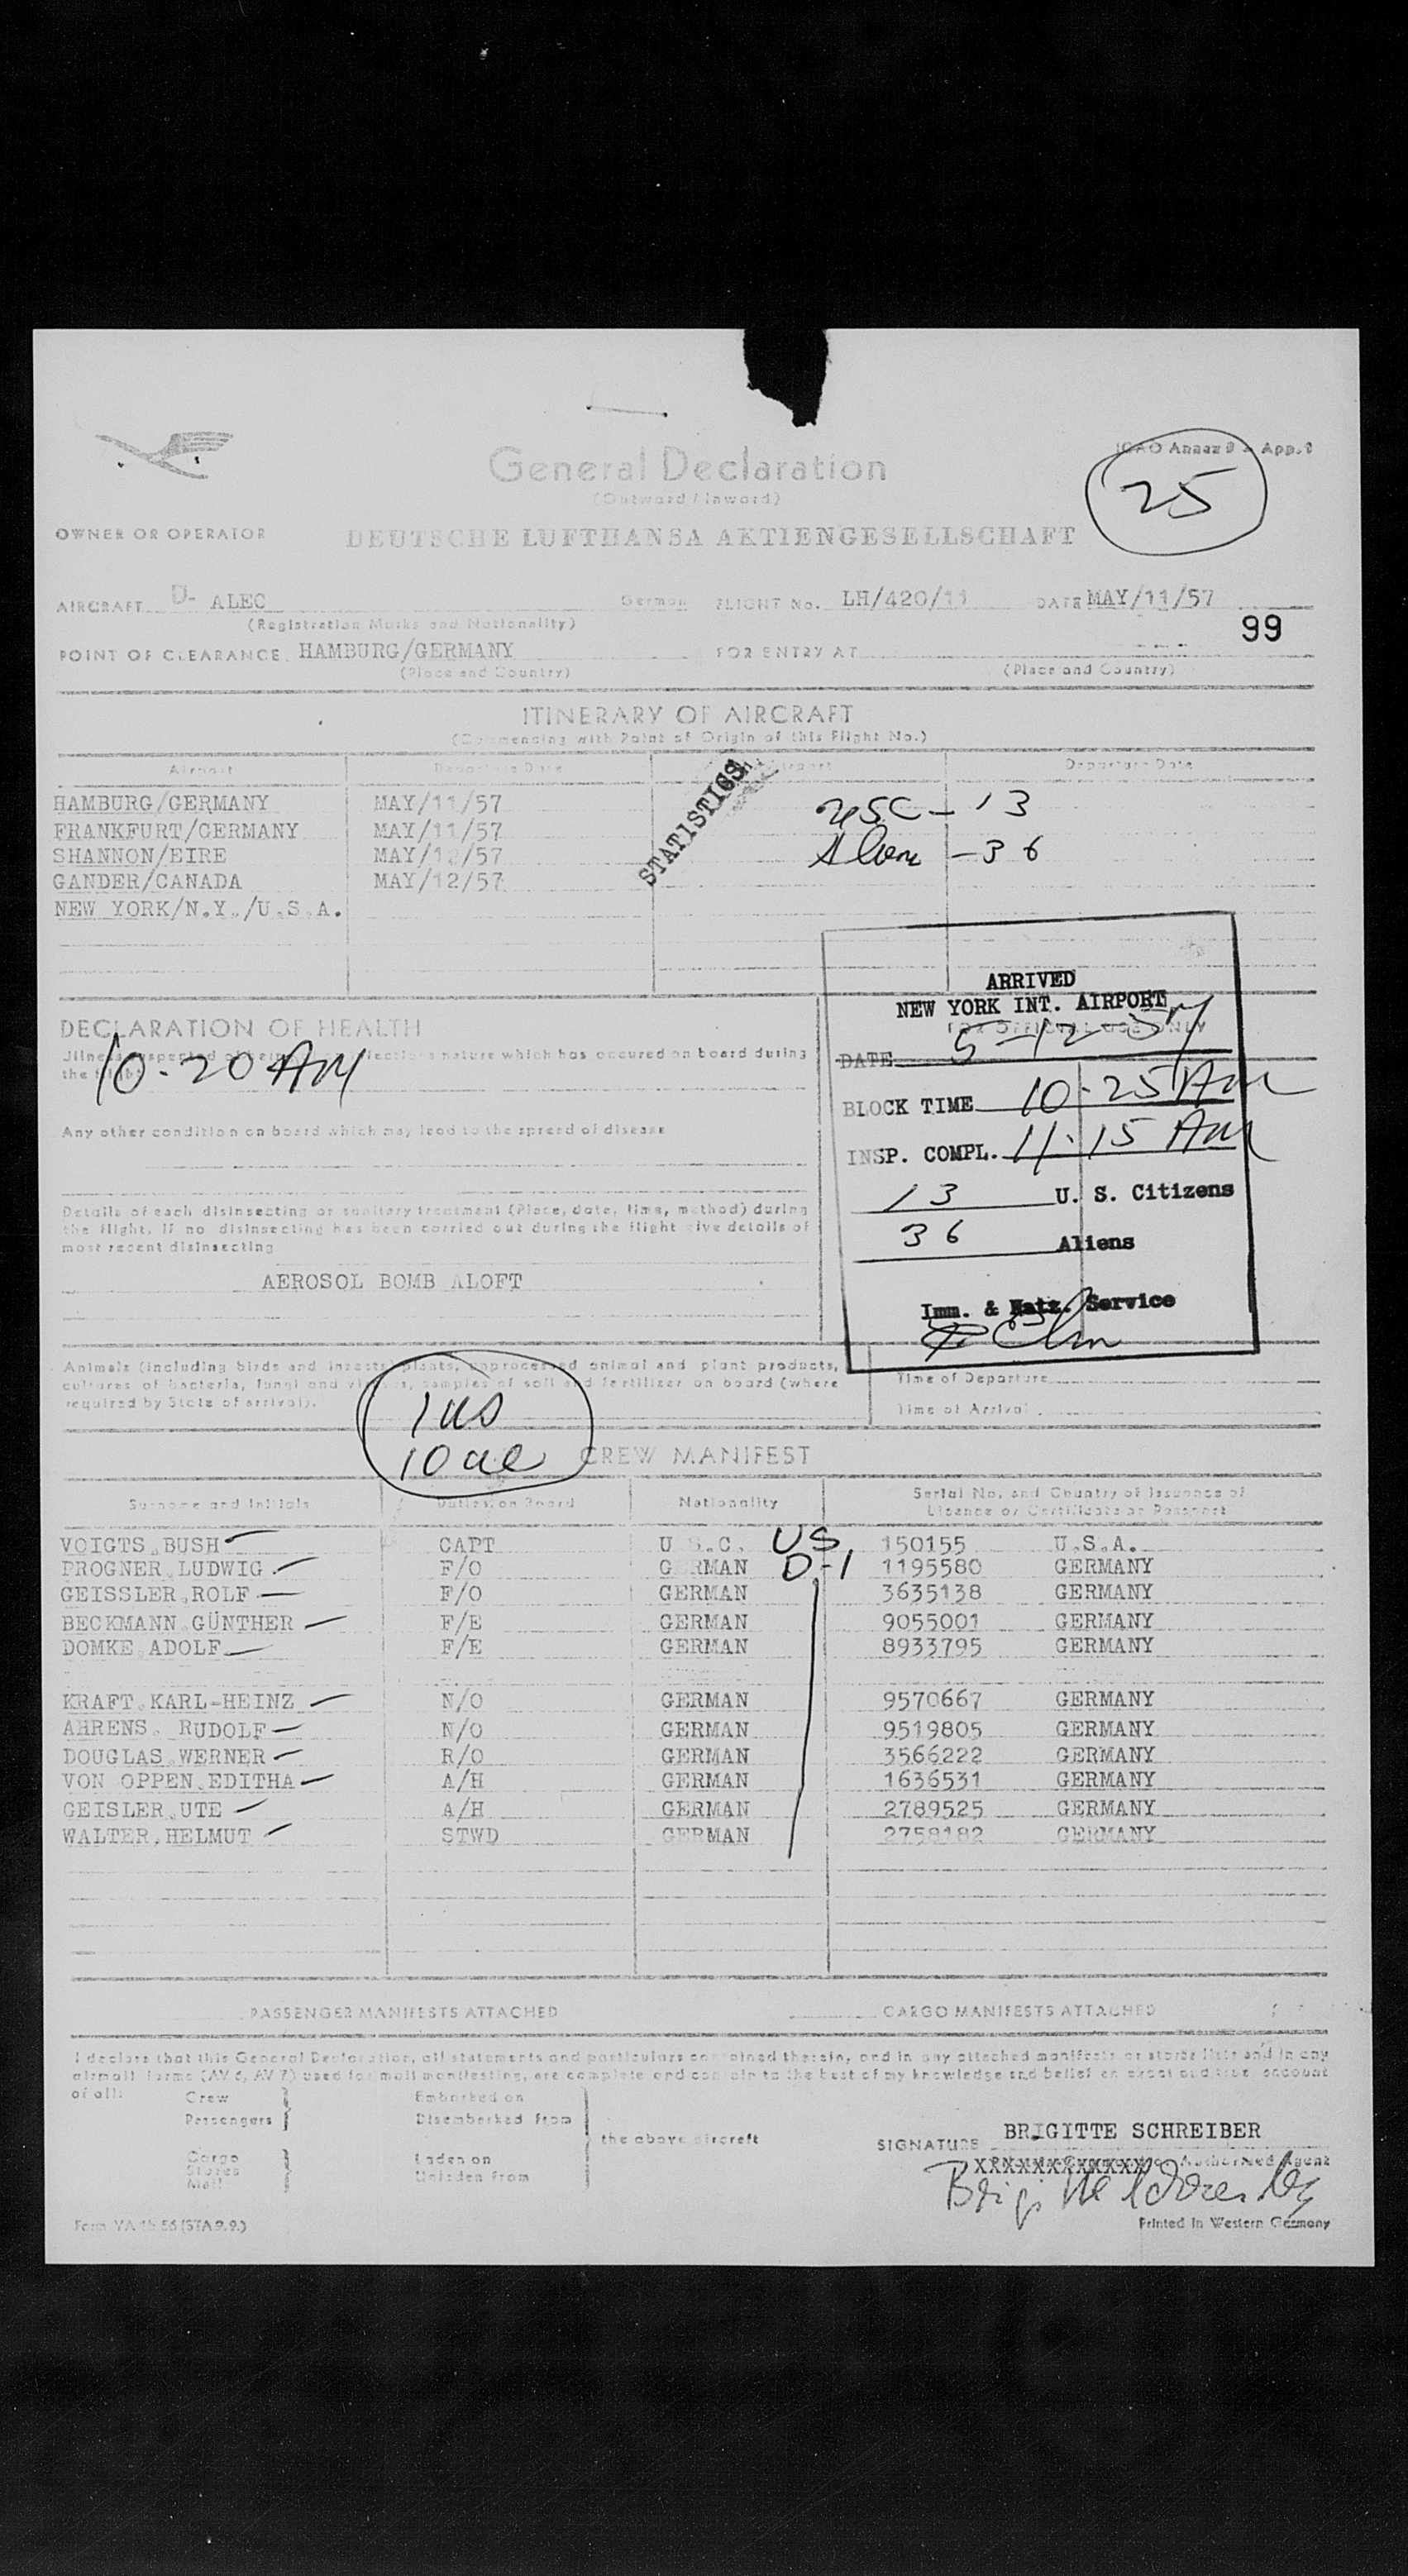 ICAO Annex 9 - App. 1
25
General Declaration
(Outward / Inward)
OWNER OR OPERATOR DEUTSCHE LUFTHANSA AKTIENGESELLSCHAFT
AIRCRAFT D- ALEC German FLIGHT No. LH/420/11 DATE MAY/11/57
(Registration Marks and Nationality)
99
POINT OF CLEARANCE HAMBURG/GERMANY FOR ENTRY AT
(Place and Country) (Place and Country)
ITINERARY OF AIRCRAFT
(Commencing with Point of Origin of this Flight No.)
Airport Departure Date Airport Departure Date
STATISTICS
HAMBURG/GERMANY MAY/11/57 USC - 13
FRANKFURT/GERMANY MAY/11/57
SHANNON/EIRE MAY/12/57 Alien - 36
GANDER/CANADA MAY/12/57
NEW YORK/N.Y./U.S.A.
ARRIVED
NEW YORK INT. AIRPORT
FOR OFFICIAL USE ONLY
DATE 5-12-57
BLOCK TIME 10.25 AM
INSP. COMPL. 11.15 AM
13 U. S. Citizens
36 Aliens
Imm. & Natz. Service
DECLARATION OF HEALTH
Illness suspected of being of an infectious nature which has occured on board during
the flight
10.20 AM
Any other condition on board which may lead to the spread of disease
Details of each disinsecting or sanitary treatment (Place, date, time, method) during
the flight. If no disinsecting has been carried out during the flight give details of
most recent disinsecting
AEROSOL BOMB ALOFT
Animals (including birds and insects) plants, unprocessed animal and plant products,
cultures of bacteria, fungi and viruses, samples of soil and fertilizer on board (where
required by State of arrival).
Time of Departure
Time of Arrival
1 us
10 al
CREW MANIFEST
Surname and Initials Duties on Board Nationality Serial No. and Country of Issuance of
Licence or Certificate or Passport
VOIGTS,BUSH CAPT U.S.C. US 150155 U.S.A.
PROGNER,LUDWIG F/O GERMAN D-1 1195580 GERMANY
GEISSLER,ROLF F/O GERMAN 3635138 GERMANY
BECKMANN,GÜNTHER F/E GERMAN 9055001 GERMANY
DOMKE,ADOLF F/E GERMAN 8933795 GERMANY
KRAFT,KARL-HEINZ N/O GERMAN 9570667 GERMANY
AHRENS, RUDOLF N/O GERMAN 9519805 GERMANY
DOUGLAS,WERNER R/O GERMAN 3566222 GERMANY
VON OPPEN,EDITHA A/H GERMAN 1636531 GERMANY
GEISLER,UTE A/H GERMAN 2789525 GERMANY
WALTER,HELMUT STWD GERMAN 2758182 GERMANY
PASSENGER MANIFESTS ATTACHED CARGO MANIFESTS ATTACHED
I declare that this General Declaration, all statements and particulars contained therein, and in any attached manifests or stores lists and in any
airmail forms (AV 6, AV 7) used for mail manifesting, are complete and contain to the best of my knowledge and belief an exact and true account
of all:
Crew Embarked on
Passengers Disembarked from
the above aircraft
Cargo Laden on
Stores Unladen from
Mail
BRIGITTE SCHREIBER
SIGNATURE
XXXXXXXXXXXXX Authorised Agent
Brigitte Schreiber
Form VA 1b 56 (STA 9.9.) Printed in Western Germany